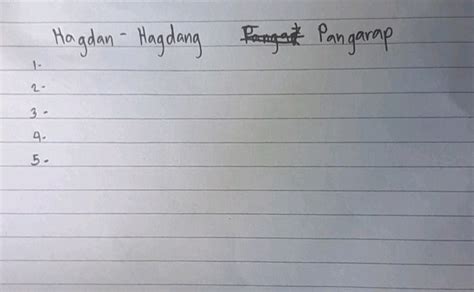 Hagdan - Hagdang Pangarap
1-
2-
3-
4-
5-